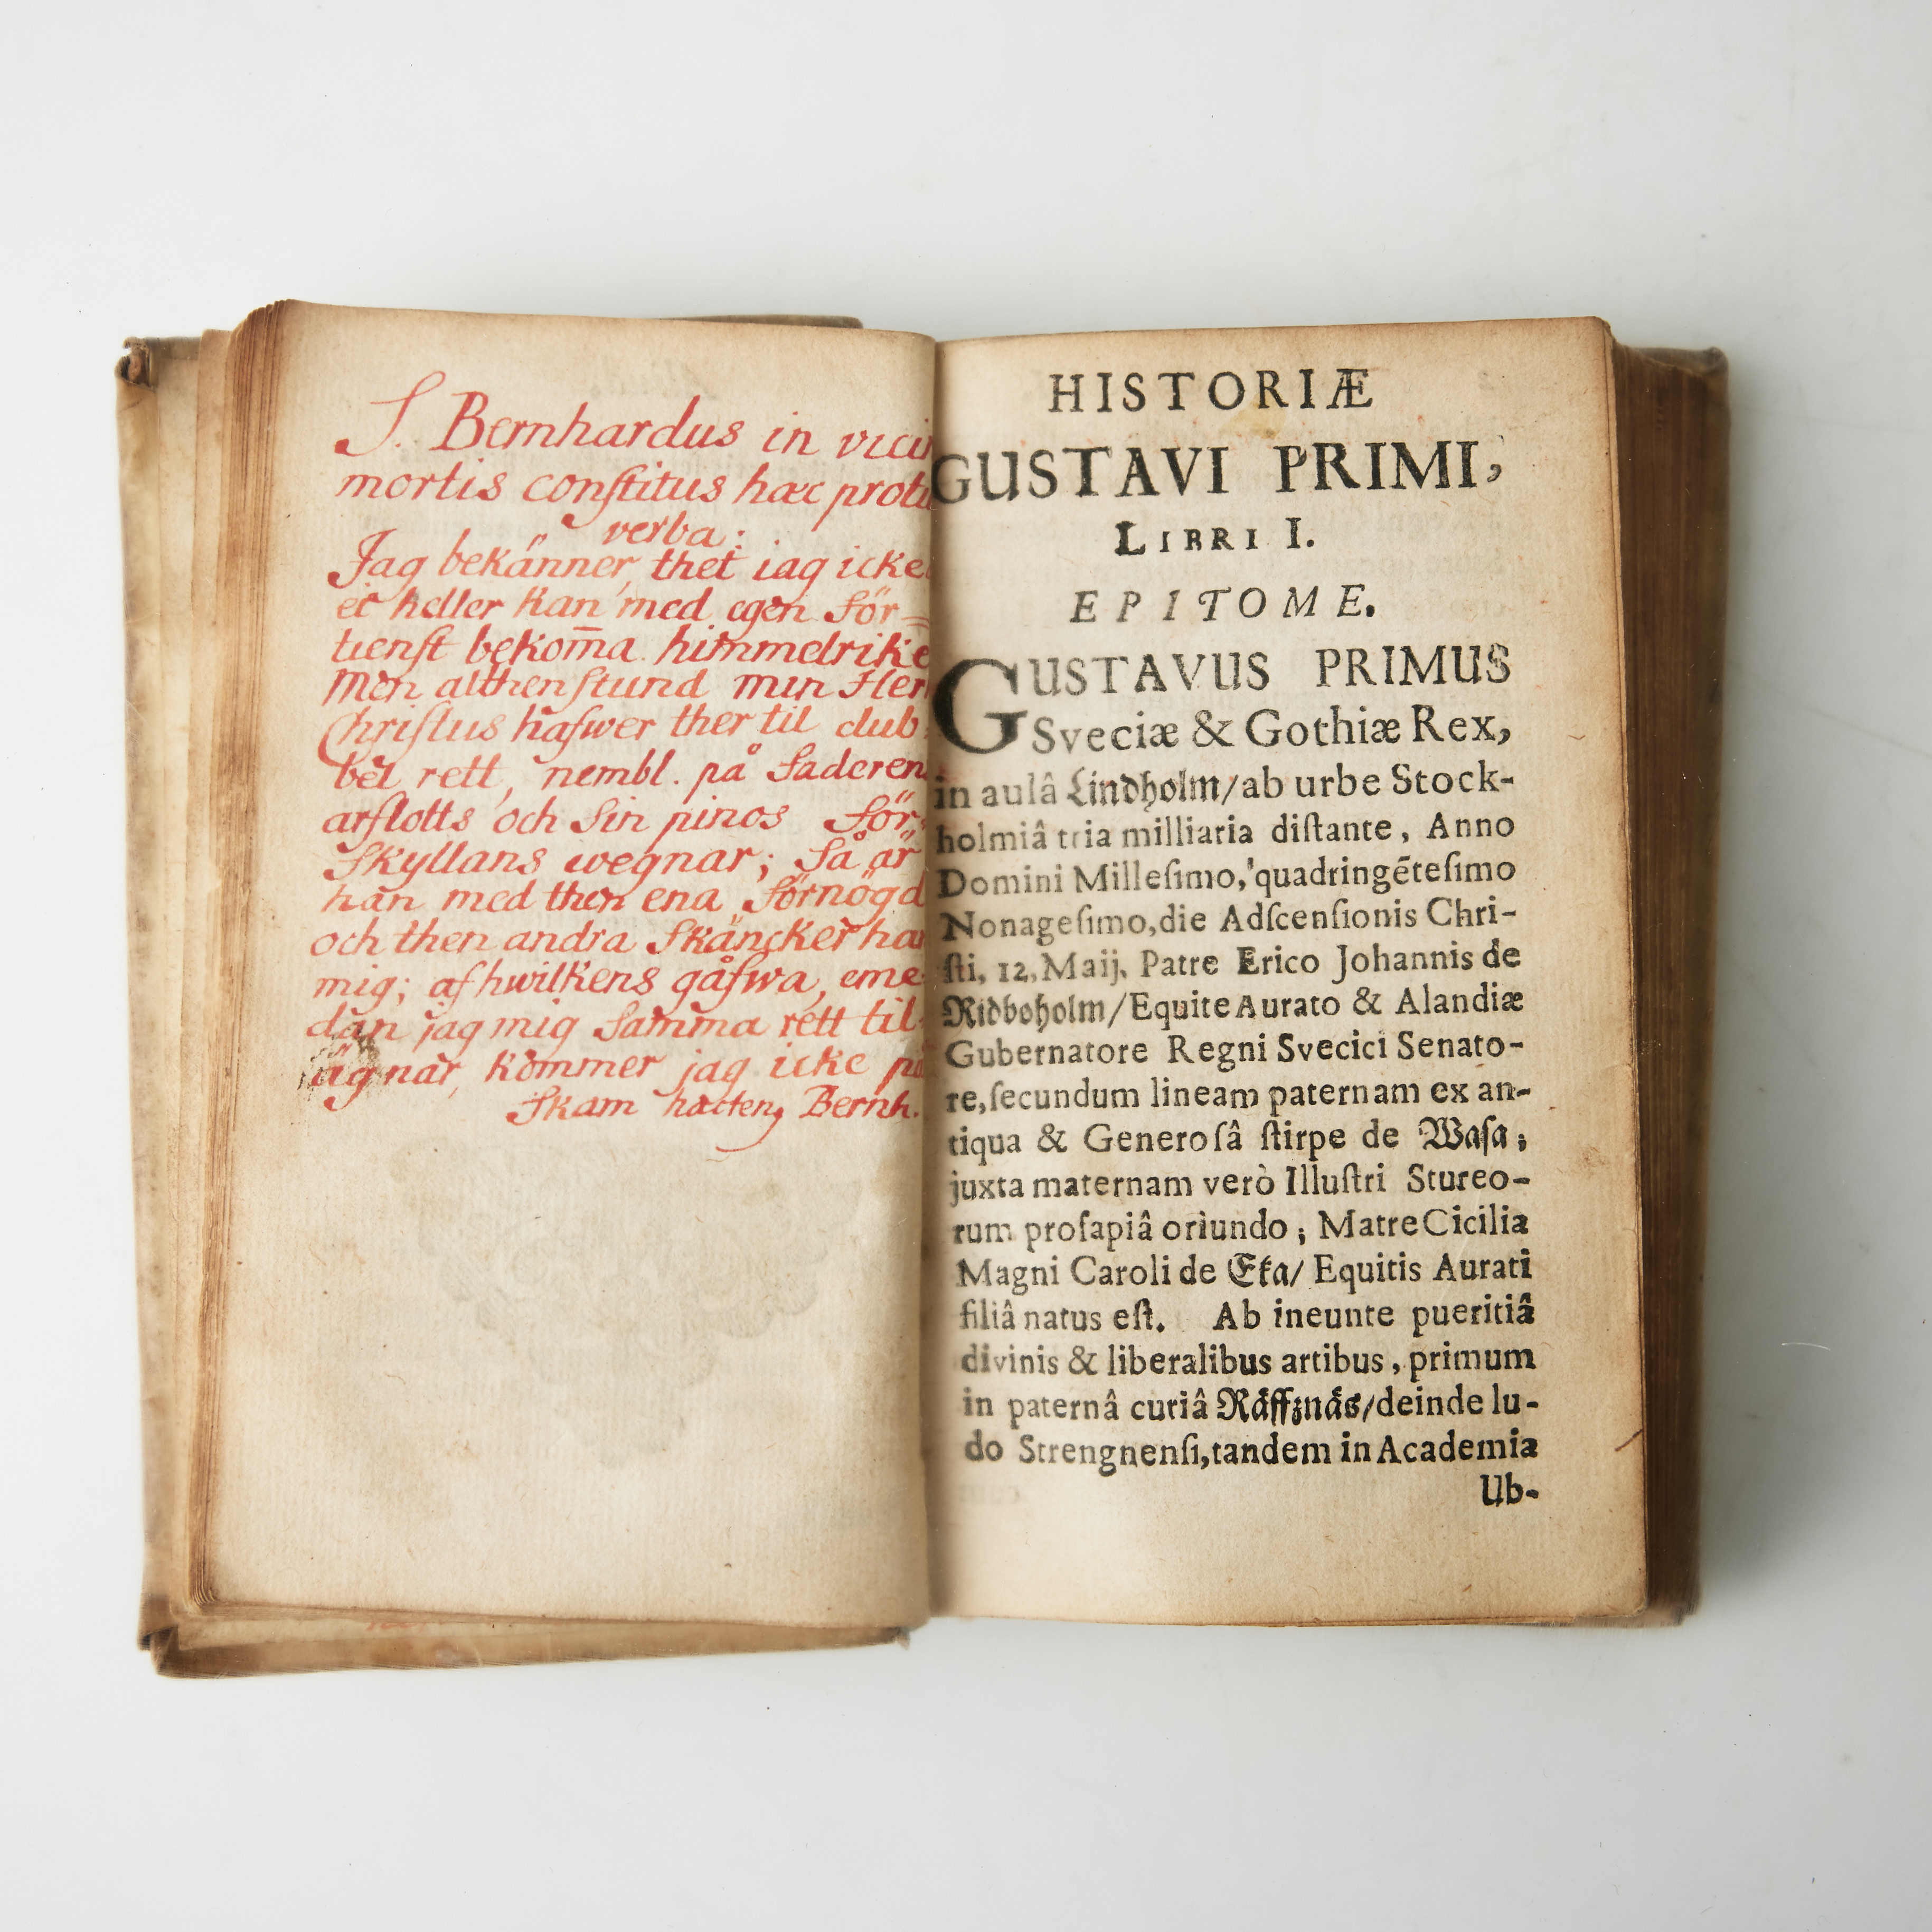 S. Bernhardus in vici
mortis conſtitus hæc protu
verba:
Jag bekänner, thet iag icke
ei heller kan med egen för=
tienſt bekom̅a himmelrike
Men althenſtund min Her
Chriſtus hafwer ther til dub
bel rett, nembl. på faderen
arfſlotts och ſin pinos för
ſkyllans wegnar; ſå är
han med then ena förnögd
och then andra ſkäncker han
mig; af hwilkens gåfwa, eme
dan jag mig ſamma rett til=
ägnar, kommer jag icke på
ſkam Bernh.
HISTORIÆ
GUSTAVI PRIMI,
LIBRI I.
EPITOME.
GUSTAVUS PRIMUS
Sveciæ & Gothiæ Rex,
in aulâ Lindholm/ab urbe Stock-
holmiâ tria milliaria diſtante, Anno
Domini Milleſimo, quadringēteſimo
Nonageſimo, die Adſcenſionis Chri-
ſti, 12, Maij. Patre Erico Johannis de
Ridboholm/Equite Aurato & Alandiæ
Gubernatore Regni Svecici Senato-
re, ſecundum lineam paternam ex an-
tiqua & Generoſâ ſtirpe de Waſa;
juxta maternam verò Illuſtri Stureo-
rum proſapiâ oriundo; Matre Cicilia
Magni Caroli de Eka/ Equitis Aurati
filiâ natus eſt. Ab ineunte pueritiâ
divinis & liberalibus artibus, primum
in paternâ curiâ Räffznäs/deinde lu-
do Strengnenſi, tandem in Academia
Ub-